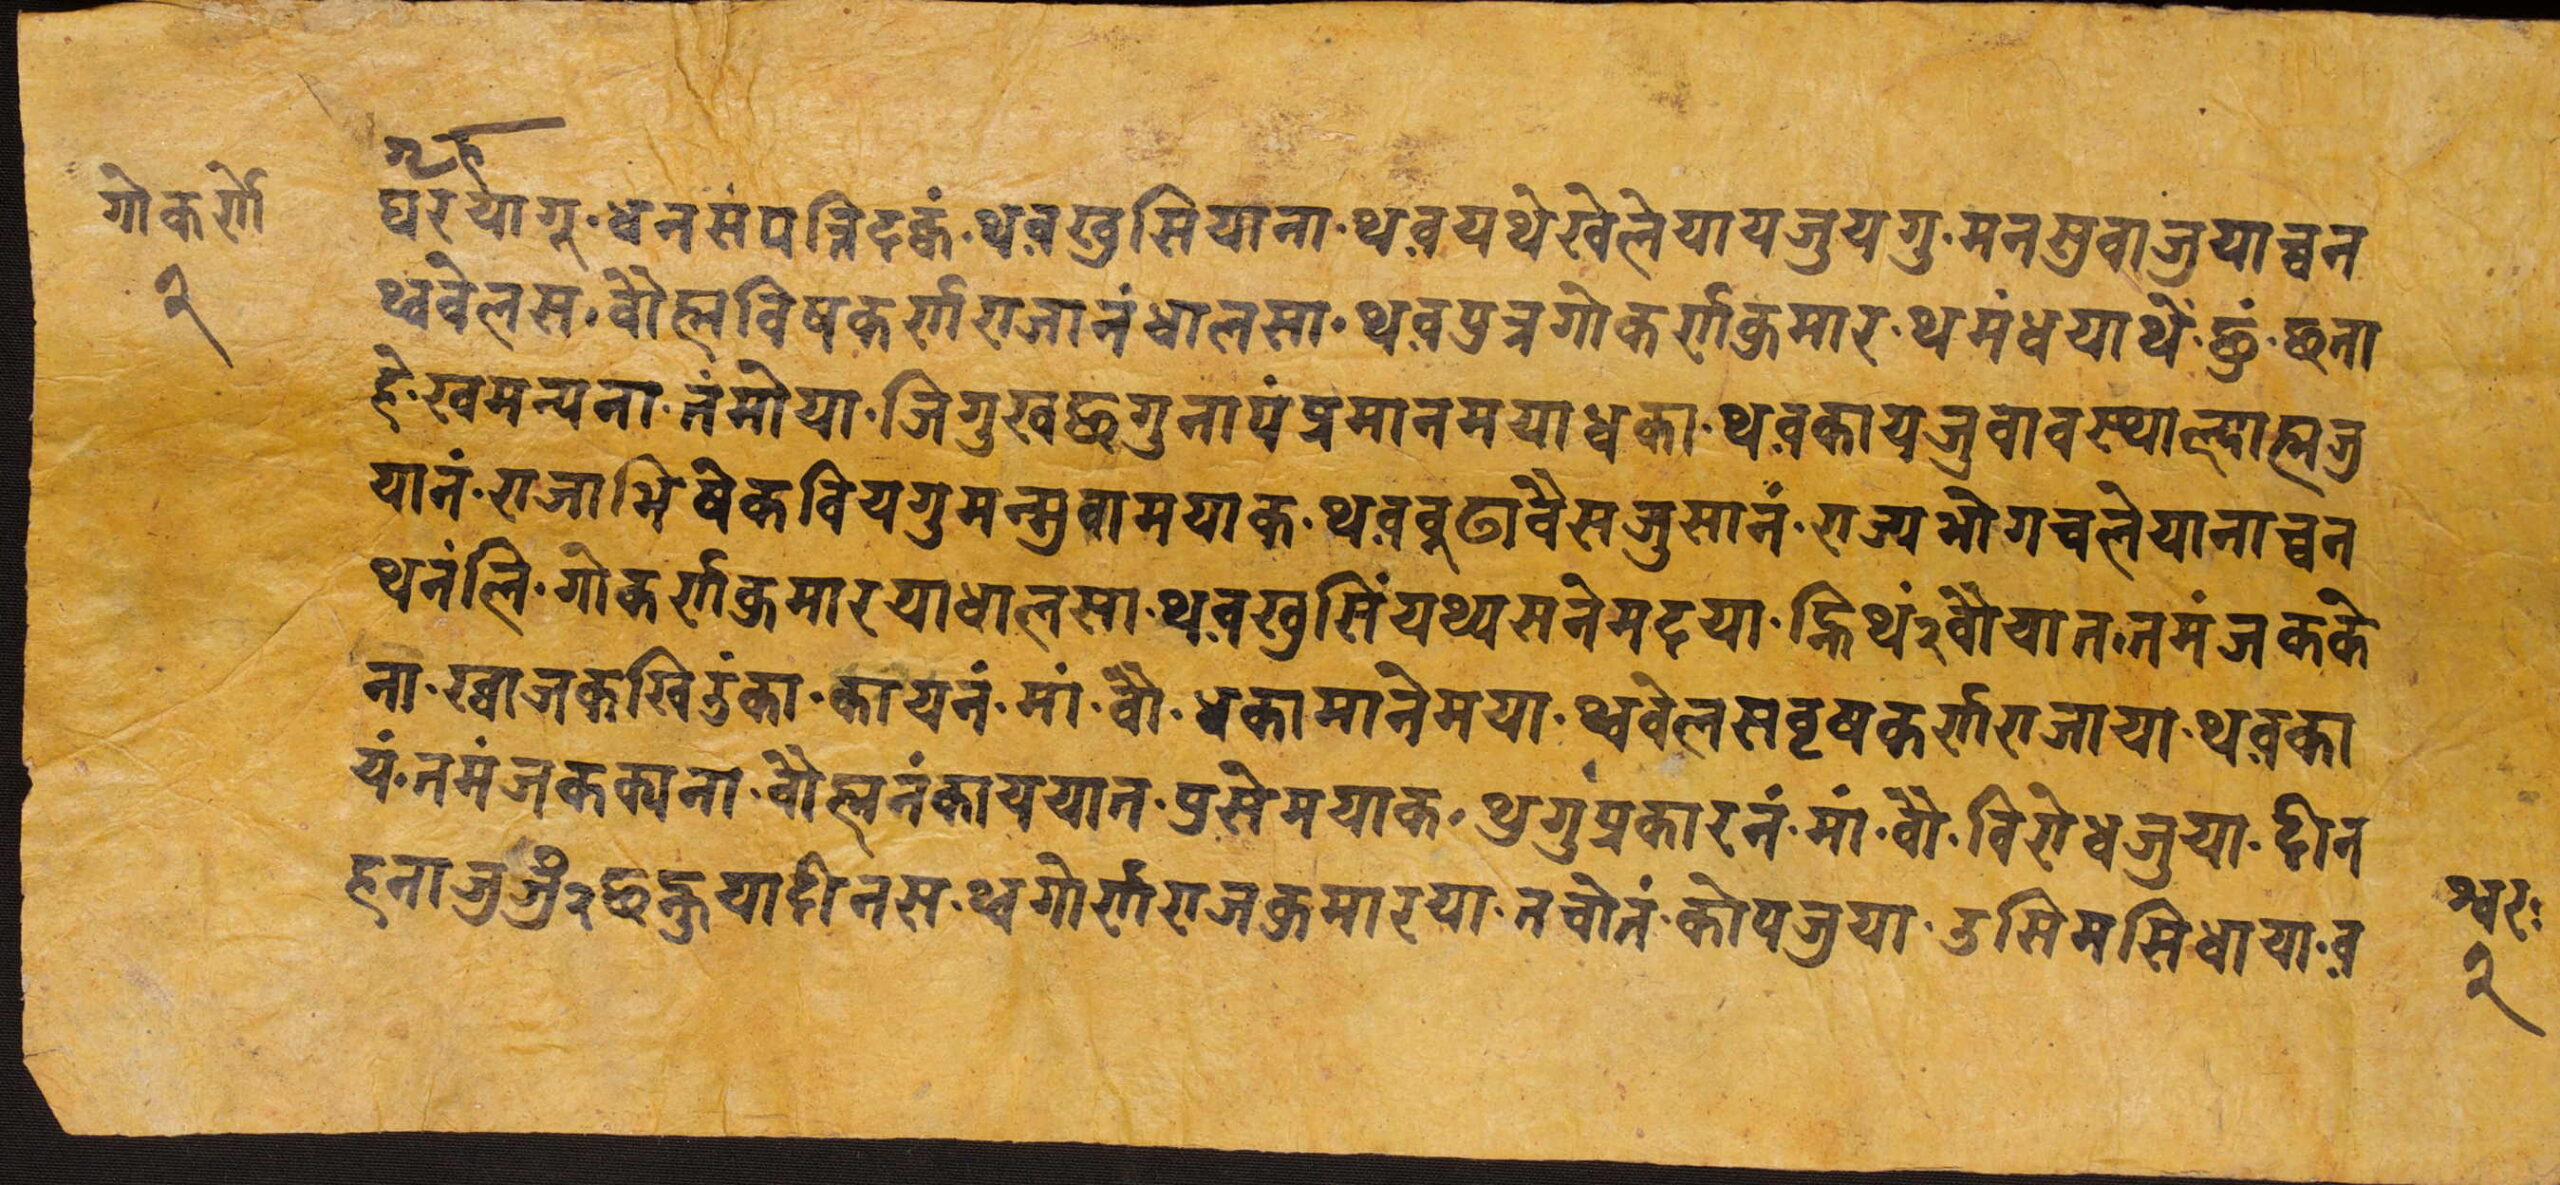 गृह
गोकर्णे
२
घरयागू·धनसंपत्रिदक्वं·थव़खुसियाना·थव़यथेखेलेयायजुयगु·मनसुवाजुयाच्वन
थ्ववेलस·वौह्मविषकर्णराजानंधालसा·थव़पुत्रगोकर्णकुमार·थमंधयाथें·छुं·छना
हे·खमन्यना·नंमोया·जिगुखछगुनापंप्रमानमयाधका·थव़कायजुवावस्थाल्दाह्मजु
यानं·राजाभिषेकवियगुमन्सुवामयाक·थव़वूढावैसजुसानं·राज्यभोगचलेयानाच्वन
थनंलि·गोकर्णकुमारयाधालसा·थव़खुसिंयथ्यसनेमदया·ह्निथं२वौयात·तमंजकके
ना·ख्वाजकखिउंका·कायनं·मां·वौ·धकामानेमया·थ्ववेलसवृषकर्णराजाया·थव़का
यं·तमंजकक्यना·वौह्मनंकाययात·प्रसेमयाक·थुगुंप्रकारनं·मां·वौ·विरोधजुया·दीन
हनाजुजुं२छन्कुयादीनस·थ्वगोर्णराजकुमारया·नचोनं·कोपजुया·उसिमसिधाया·व़
श्वरः
२